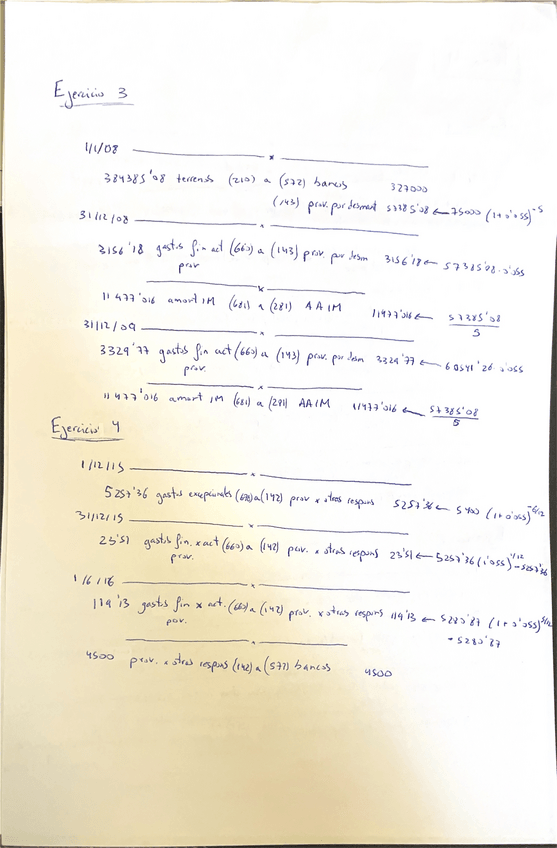 Ejercicio 3
1/1/08 x
384385'08 terrenos (210) a (572) bancos 327000
(143) prov. por desmant 57385'08 ← 75000 (1+0'055)^-5
31/12/08 x
3156'18 gastos fin act (660) a (143) prov. por desm 3156'18 ← 57385'08·0'055
prov
x
11477'016 amort IM (681) a (281) AAIM 11477'016 ← 57385'08
5
31/12/09 x
3329'77 gastos fin act (660) a (143) prov. por desm 3329'77 ← 60541'26·0'055
prov.
x
11477'016 amort IM (681) a (281) AAIM 11477'016 ← 57385'08
5
Ejercicio 4
1/12/15 x
5257'36 gastos excepcionales (678) a (142) prov x otras respons 5257'36 ← 5400 (1+0'055)^-6/12
31/12/15 x
23'51 gastos fin. x act (660) a (142) prov. x otras respons 23'51 ← 5257'36 (1'055)^1/12 -5257'36
prov.
1/6/16 x
119'13 gastos fin x act. (660) a (142) prov. x otras respons 119'13 ← 5280'87 (1+0'055)^5/12
prov. -5280'87
x
4500 prov. x otras respons (142) a (572) bancos 4500